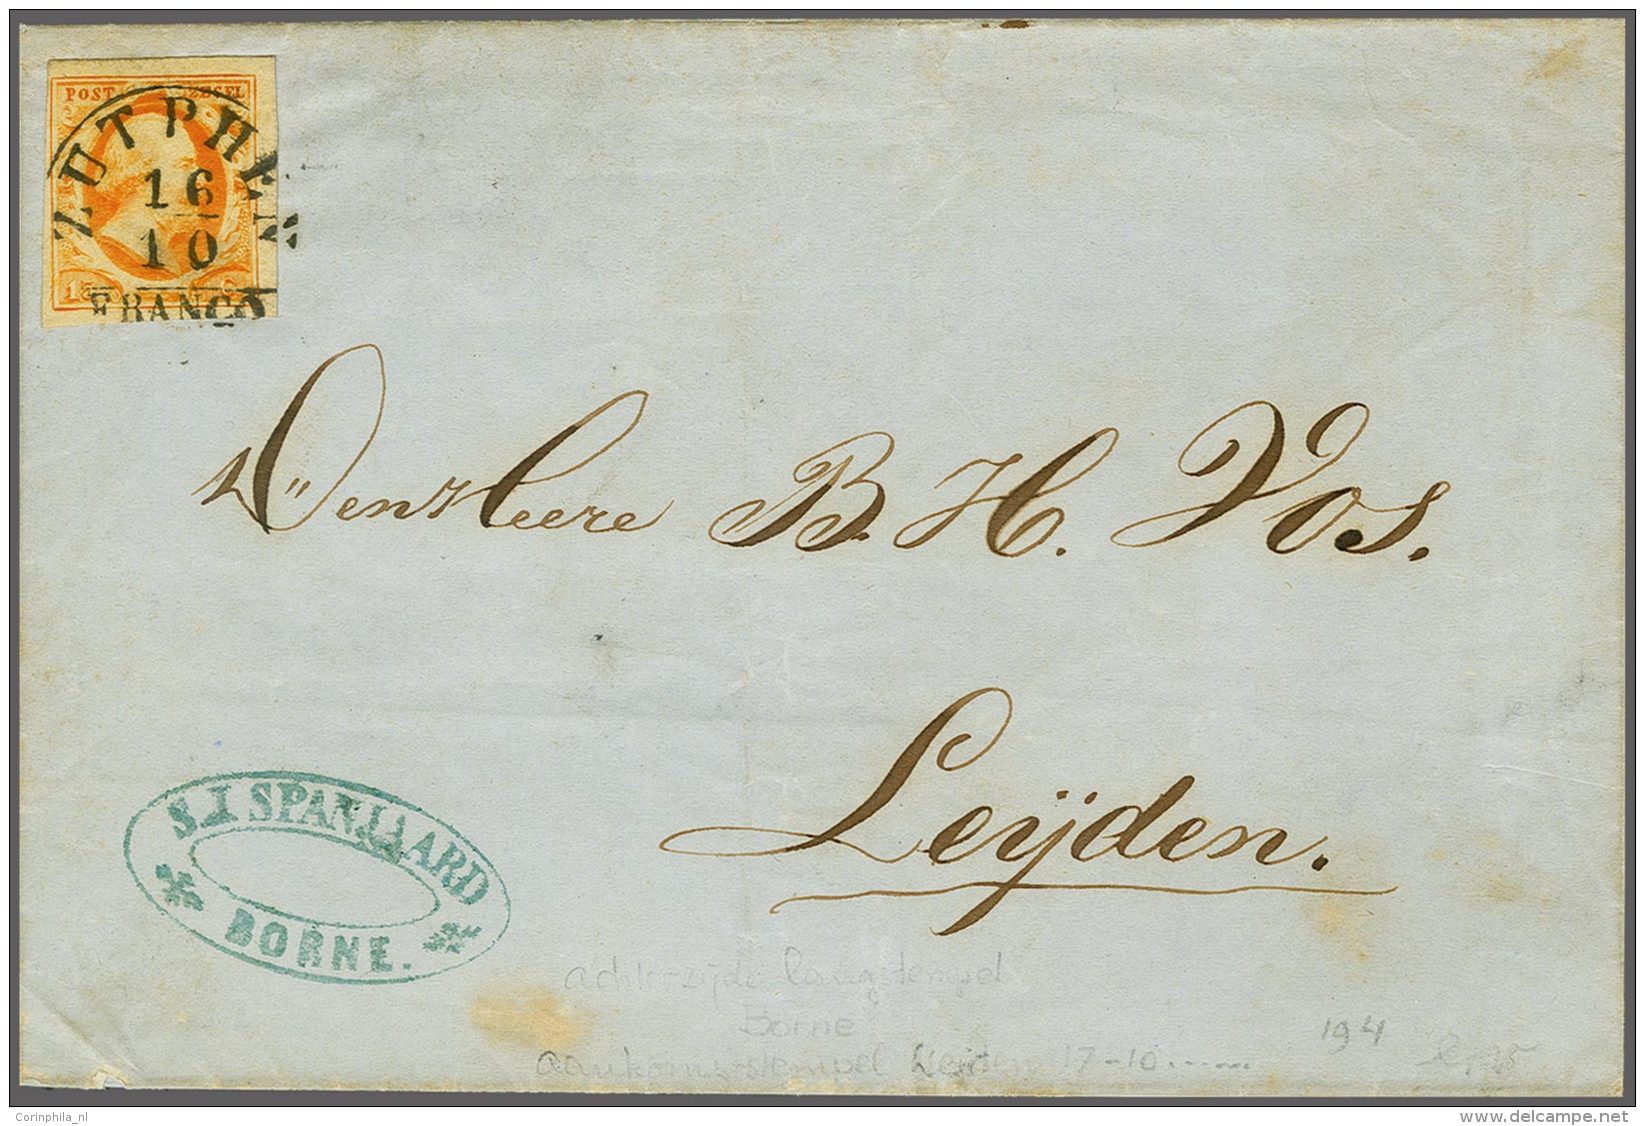 POST ZEGEL
ZUTPHEN
16
10
FRANCO
15 C
Den Heere B. H. Vos.
Leÿden.
S. I SPANJAARD
BORNE.
achterzijde langstempel
Borne
aankomststempel Leiden 17-10......
194
Corinphila_nl
delcampe.net